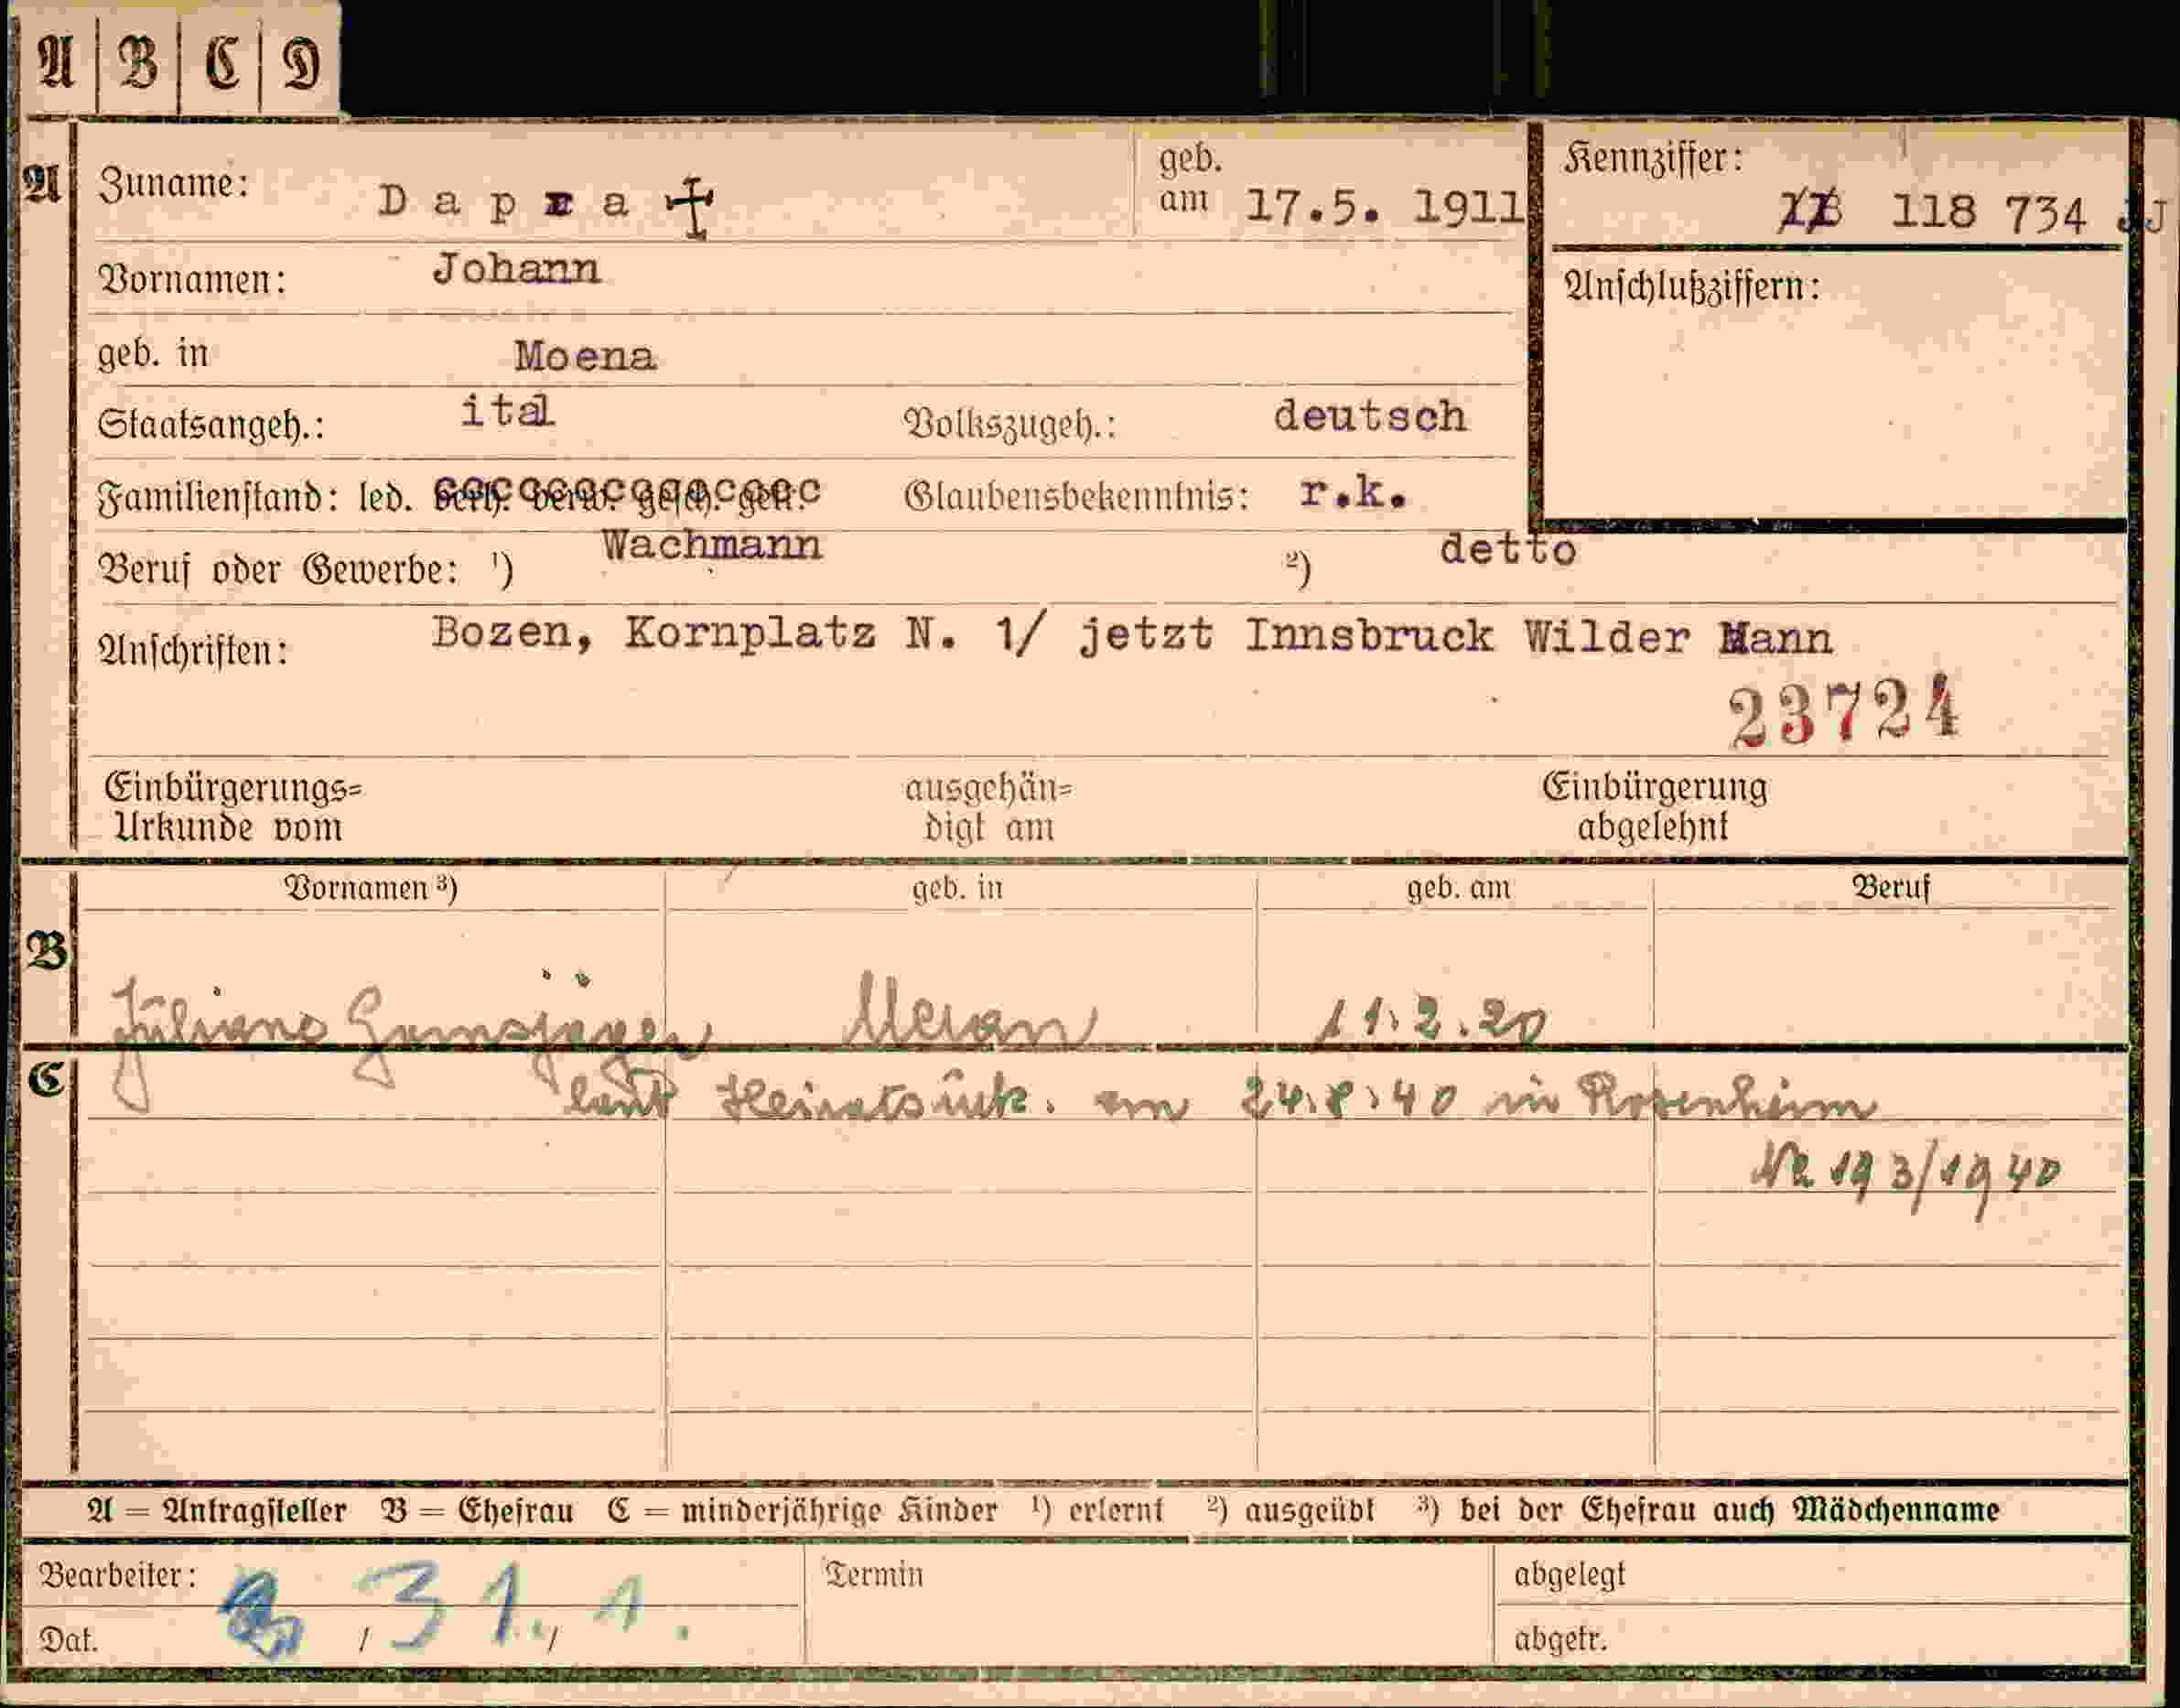 A | B | C | D
A Zuname: Dapra geb. am 17.5. 1911 Kennziffer: 118 734 J
Vornamen: Johann Anschlußziffern:
geb. in Moena
Staatsangeh.: ital Volkszugeh.: deutsch
Familienstand: led. verh. verw. gesch. getr. Glaubensbekenntnis: r.k.
Beruf oder Gewerbe: ¹) Wachmann ²) detto
Anschriften: Bozen, Kornplatz N. 1/ jetzt Innsbruck Wilder Mann
23724
Einbürgerungs= ausgehän= Einbürgerung
Urkunde vom digt am abgelehnt
Vornamen ³) geb. in geb. am Beruf
B Juliane Gamsjäger Meran 11.2.20
C laut Heiratsurk. am 24.8.40 in Rosenheim
Nr 193/1940
A = Antragsteller B = Ehefrau C = minderjährige Kinder ¹) erlernt ²) ausgeübt ³) bei der Ehefrau auch Mädchenname
Bearbeiter: Termin abgelegt
Dat. / 31. / 1. abgetr.